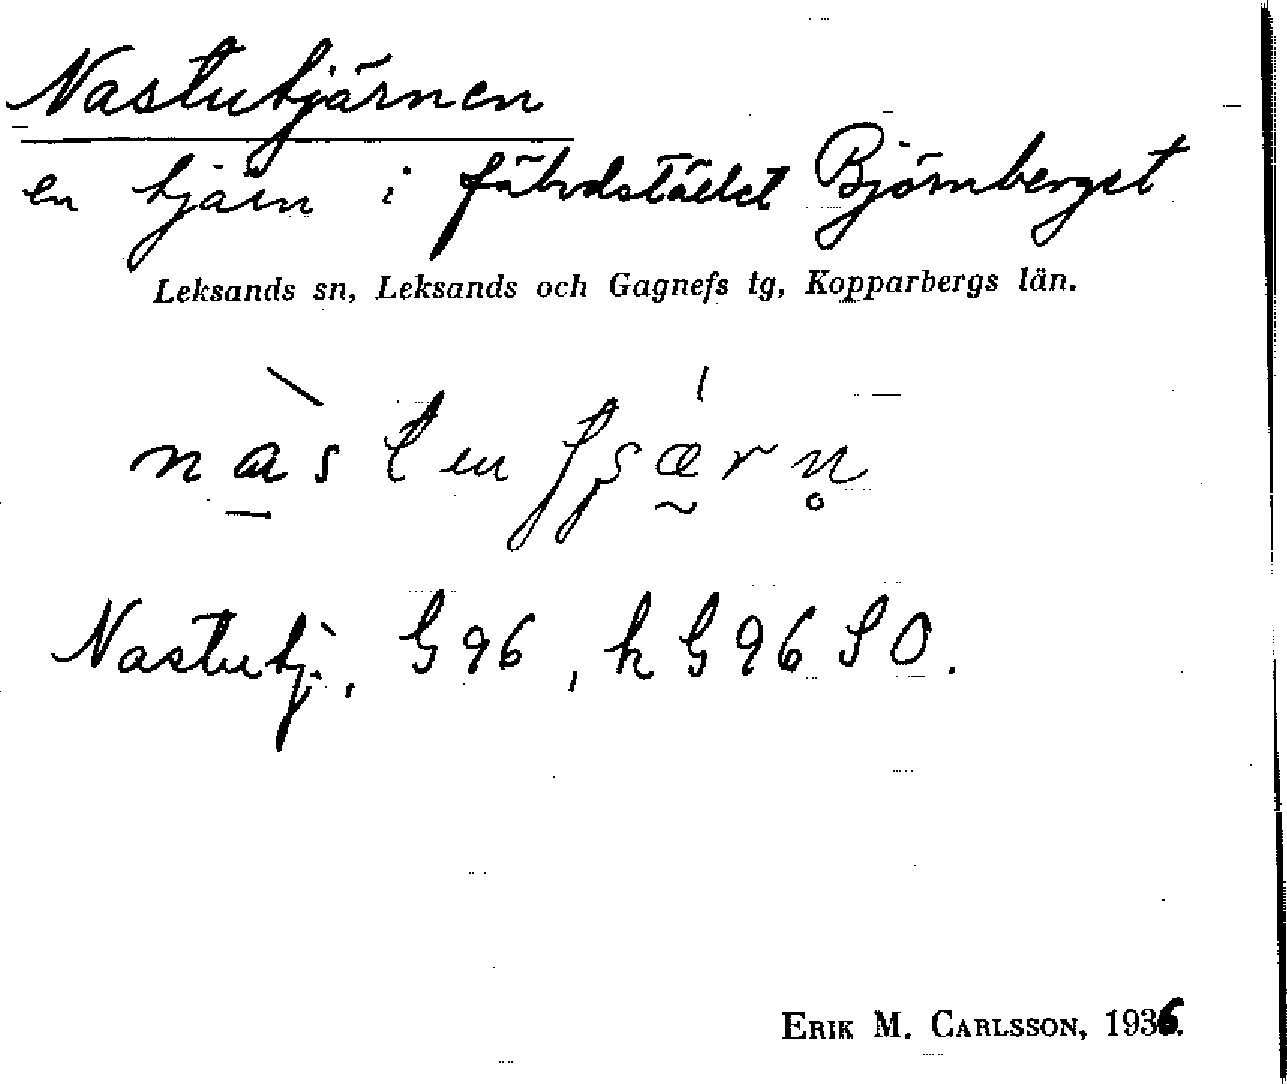 Nastutjärnen
en tjärn i fäbodstället Björnberget
Leksands sn, Leksands och Gagnefs tg, Kopparbergs län.
Nastutj., G96, k G96 SO.
ERIK M. CARLSSON, 1936.